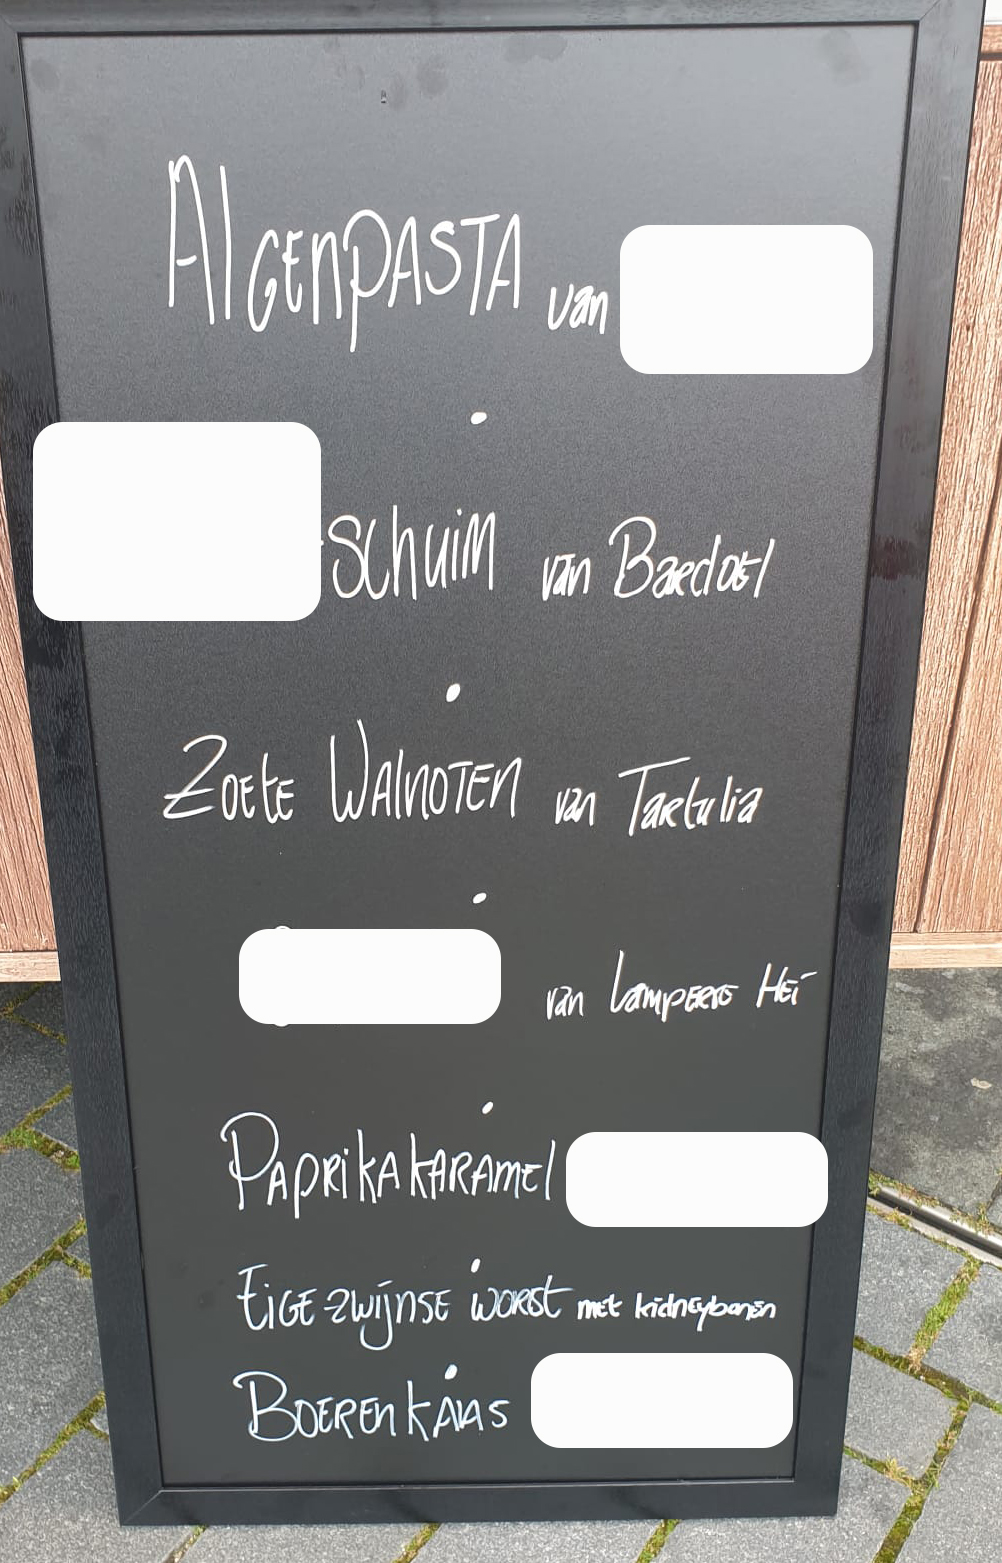 Algenpasta van
schuim van Bardoel
Zoete Walnoten van Tartulia
van Lamperse Hei
Paprikakaramel
Eige-zwijnse worst met kidneybonen
Boerenkaas